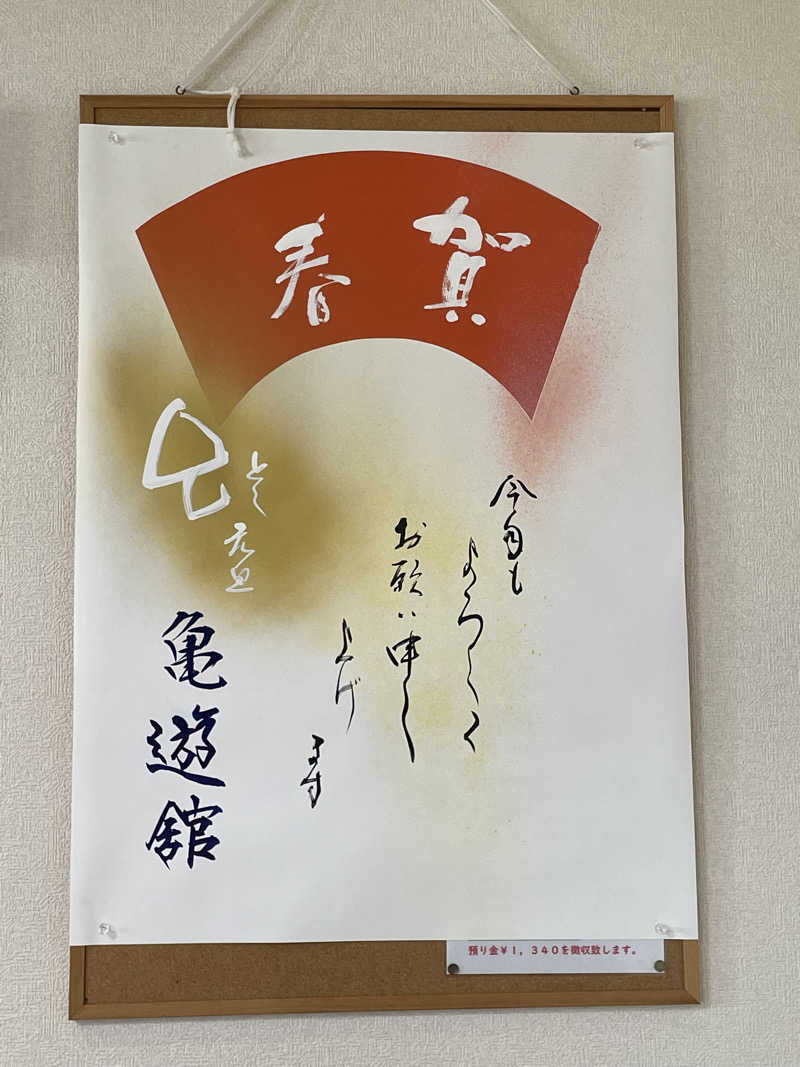 賀春
今年も
よろしく
お願い申し
上げ
ます
とし
元旦
亀遊舘
預り金￥１，３４０を徴収致します。